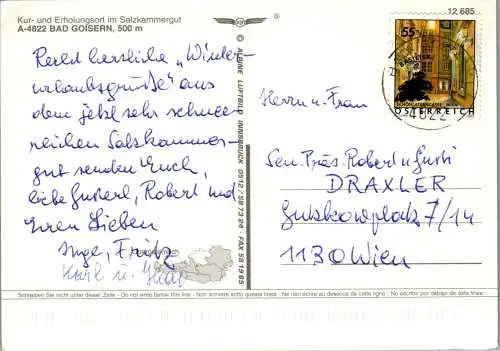 Kur- und Erholungsort im Salzkammergut
A-4822 BAD GOISERN, 500 m
12 685
Recht herzliche „Winter-
urlaubsgrüße" aus
dem jetzt sehr schnee-
reichen Salzkammer-
gut senden Euch,
liebe Gusterl, Robert und
Euren Lieben
Inge, Fritz
Karl u.
© ALPINE LUFTBILD INNSBRUCK 0512/587324 - FAX 581965
55
ÖSTERREICH
4822
Herrn u. Frau
Sen. Präs. Robert u. Gusti
DRAXLER
Gutzkowplatz 7/14
1130 Wien
Schreiben Sie nicht unter dieser Zeile - Do not write below this line - Non scrivere sotto questa linea - Ne rien inscrire au dessous de cette ligne - No escribir por debajo de esta linea